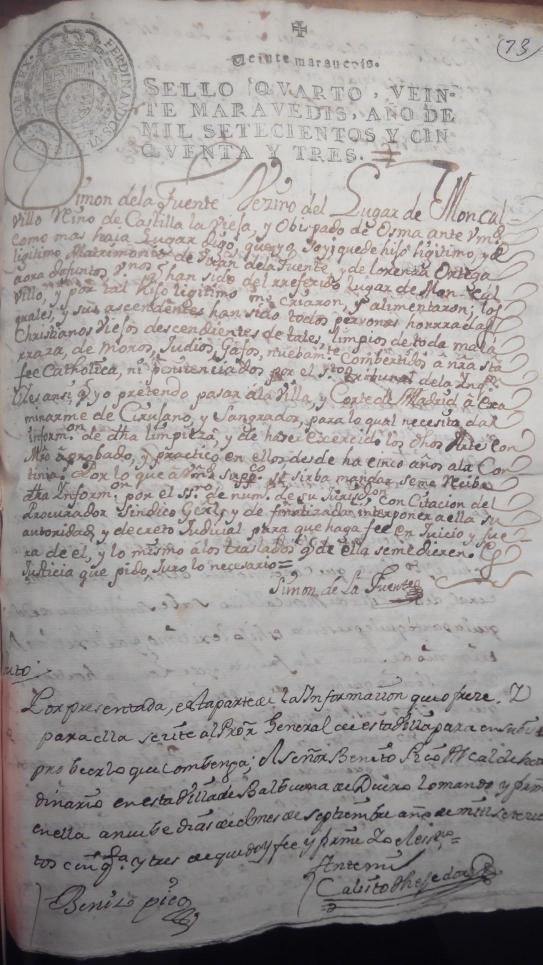 (73
Veinte maravedis.
SELLO QVARTO, VEIN-
TE MARAVEDIS, AÑO DE
MIL SETECIENTOS Y CIN
QVENTA Y TRES.
FERDINANDUS VI
Simon dela Fuente Vezino del Lugar de Moncal-
villo Reino de Castilla la Vieja, y Obispado de Osma ante Vmd
como mas haia Lugar digo, que yo soy, y quede hijo ligitimo, y de
ligitimo Matrimonio de Juan dela Fuente, y de Lorenza Ortega
aora difuntos, y nos que han sido del rreferido Lugar de Moncal
villo, y por tal hijo legitimo me criaron, y alimentaron; los
quales, y sus ascendentes han sido todos personas honrradas
Christianos Viejos descendientes de tales, limpios de toda mala
rraza, de Moros, Judios, Gafos, nuebamte Combertidos à nra Sta
fee Catholica, ni Penitenciados por el Sto tribunal dela Inqon
Ies ansi, q yo pretendo pasar ala Villa, y Corte de Madrid à exa
minarme de Cirujano, y Sangrador, para lo qual necesito dar
informon de dha limpieza, y de haver exercido los dhos Arte con
Mro aprobado, y practico en ellos desde ha cinco años ala Con
tinua; Por lo que à Vmd Suppco se sirba mandar, se me reciba
dha Informon por el Ssno de num. de su con Citacion del
Procurador Sindico Gerl, y de finalizada interponer a ella su
autoridad, y decreto Judicial para que haga fee en Juicio, y fue
ra de el, y lo mismo à los traslados q de ella se me dieren
Justicia que pido, Juro lo necesario=
Simon de La Fuente
Auto:
Por presentada, esta parte de la Informacion que ofreze. Y
para ella se cite al Pror General de esta Villa para en su bista
probeer lo que combenga; el señor Benito Pico Alcalde hor
dinario en esta Villa de Balbuena de Duero lo mando y firmo
en ella a nuebe dias del mes de septiembre año de mill setecien
tos cinqta y tres de que doy fee y firme
Ante mi
Benito pico